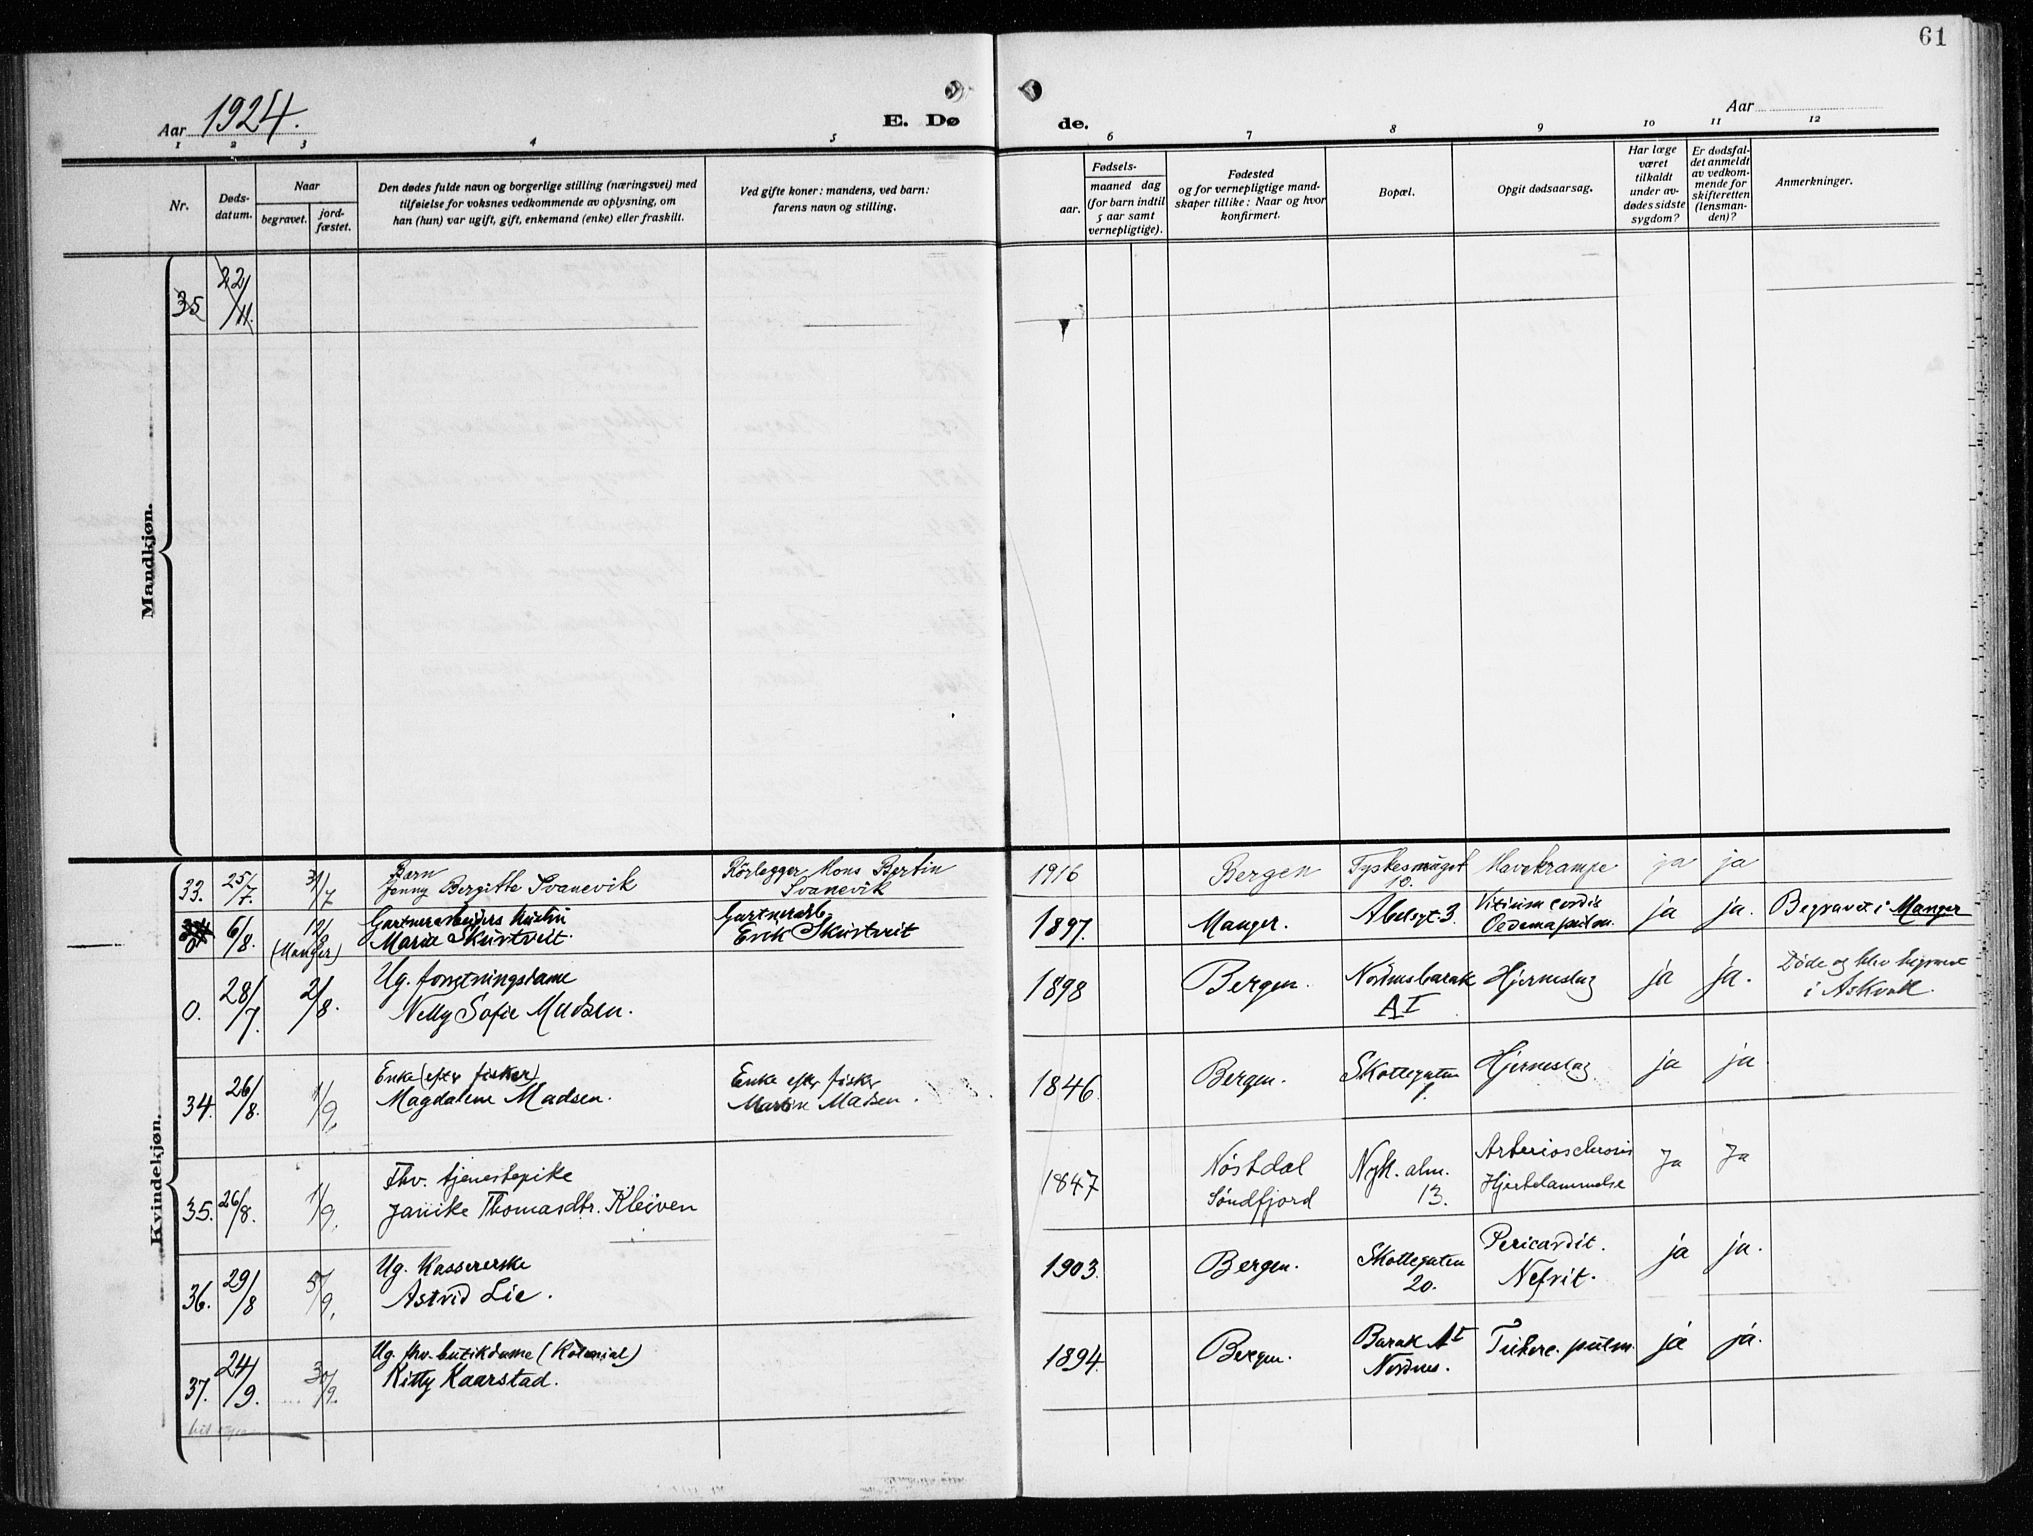 61
Aar 1924.
E. Dø de.
Aar
1 2 3 4 5 6 7 8 9 10 11 12
Nr.
Døds-
datum.
Naar
begravet.
jord-
fæstet.
Den dødes fulde navn og borgerlige stilling (næringsvei) med
tilføielse for voksnes vedkommende av oplysning, om
han (hun) var ugift, gift, enkemand (enke) eller fraskilt.
Ved gifte koner: mandens, ved barn:
farens navn og stilling.
Fødsels-
aar.
maaned dag
(for barn indtil
5 aar samt
vernepligtige).
Fødested
og for vernepligtige mand-
skaper tillike: Naar og hvor
konfirmert.
Bopæl.
Opgit dødsaarsag.
Har læge
været
tilkaldt
under av-
dødes sidste
sygdom?
Er dødsfal-
det anmeldt
av vedkom-
mende for
skifteretten
(lensman-
den)?
Anmerkninger.
Mandkjøn.
35 22/11.
Kvindekjøn.
33. 25/7. 31/7 Barn
Jenny Bergitte Svanevik
Rörlegger Mons Bertin
Svanevik
1916 Bergen Tyskesmuget
10.
Mavekrampe ja ja
0 6/8. 12/8
(Manger)
Gartnerarbeiders hustru
Marie Skurtveit.
Gartnerarb.
Erik Skurtveit
1897. Manger. Abelsgt. 3. Vitium cordis
Oedema pulm. ja ja. Begravet i Manger
0. 28/7. 2/8. Ug. forretningsdame
Nelly Sofie Madsen.
1898 Bergen. Nordnesbarak
A I
Hjerneslag ja ja. Döde og blev begravet
i Askvoll.
34. 26/8. 1/9. Enke (efter fisker)
Magdalene Madsen.
Enke eftr fisker
Martin Madsen.
1846 Bergen. Skottegaten
1.
Hjerneslag ja ja.
35. 26/8. 1/9. Fhv. tjenestepike
Janike Thomasdtr. Kleiven
1847 Nöstdal
Söndfjord
Nyk. alm.
13.
Arteriosclerosis
Hjertelammelse
Ja Ja
36. 29/8 5/9. Ug. Kassererske
Astrid Lie.
1903. Bergen. Skottegaten
20.
Pericardit.
Nefrit.
ja ja.
37. 24/9. 30/9. Ug. fhv. butikdame (Kolonial)
Kitty Kaarstad.
1894. Bergen. Barak A I
Nordnes.
Tuberc. pulm. ja ja.